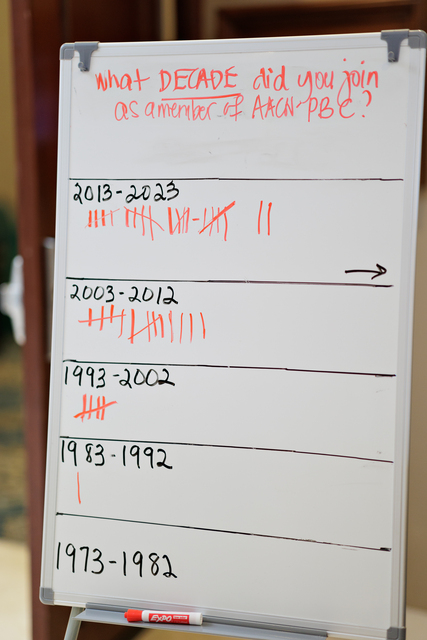 What DECADE did you join
as a member of AACN-PBC?
2013-2023
2003-2012
1993-2002
1983-1992
1973-1982
EXPO